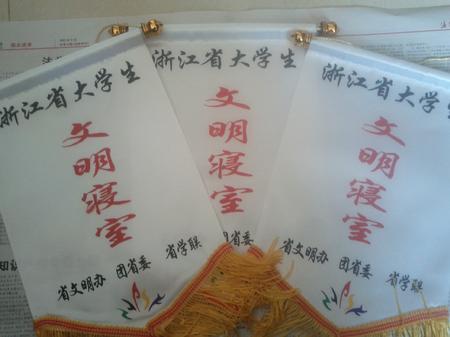 浙江省大学生
文明寝室
省文明办 团省委 省学联
浙江省大学生
文明寝室
团省委
浙江省大学生
文明寝室
省文明办 团省委 省学联